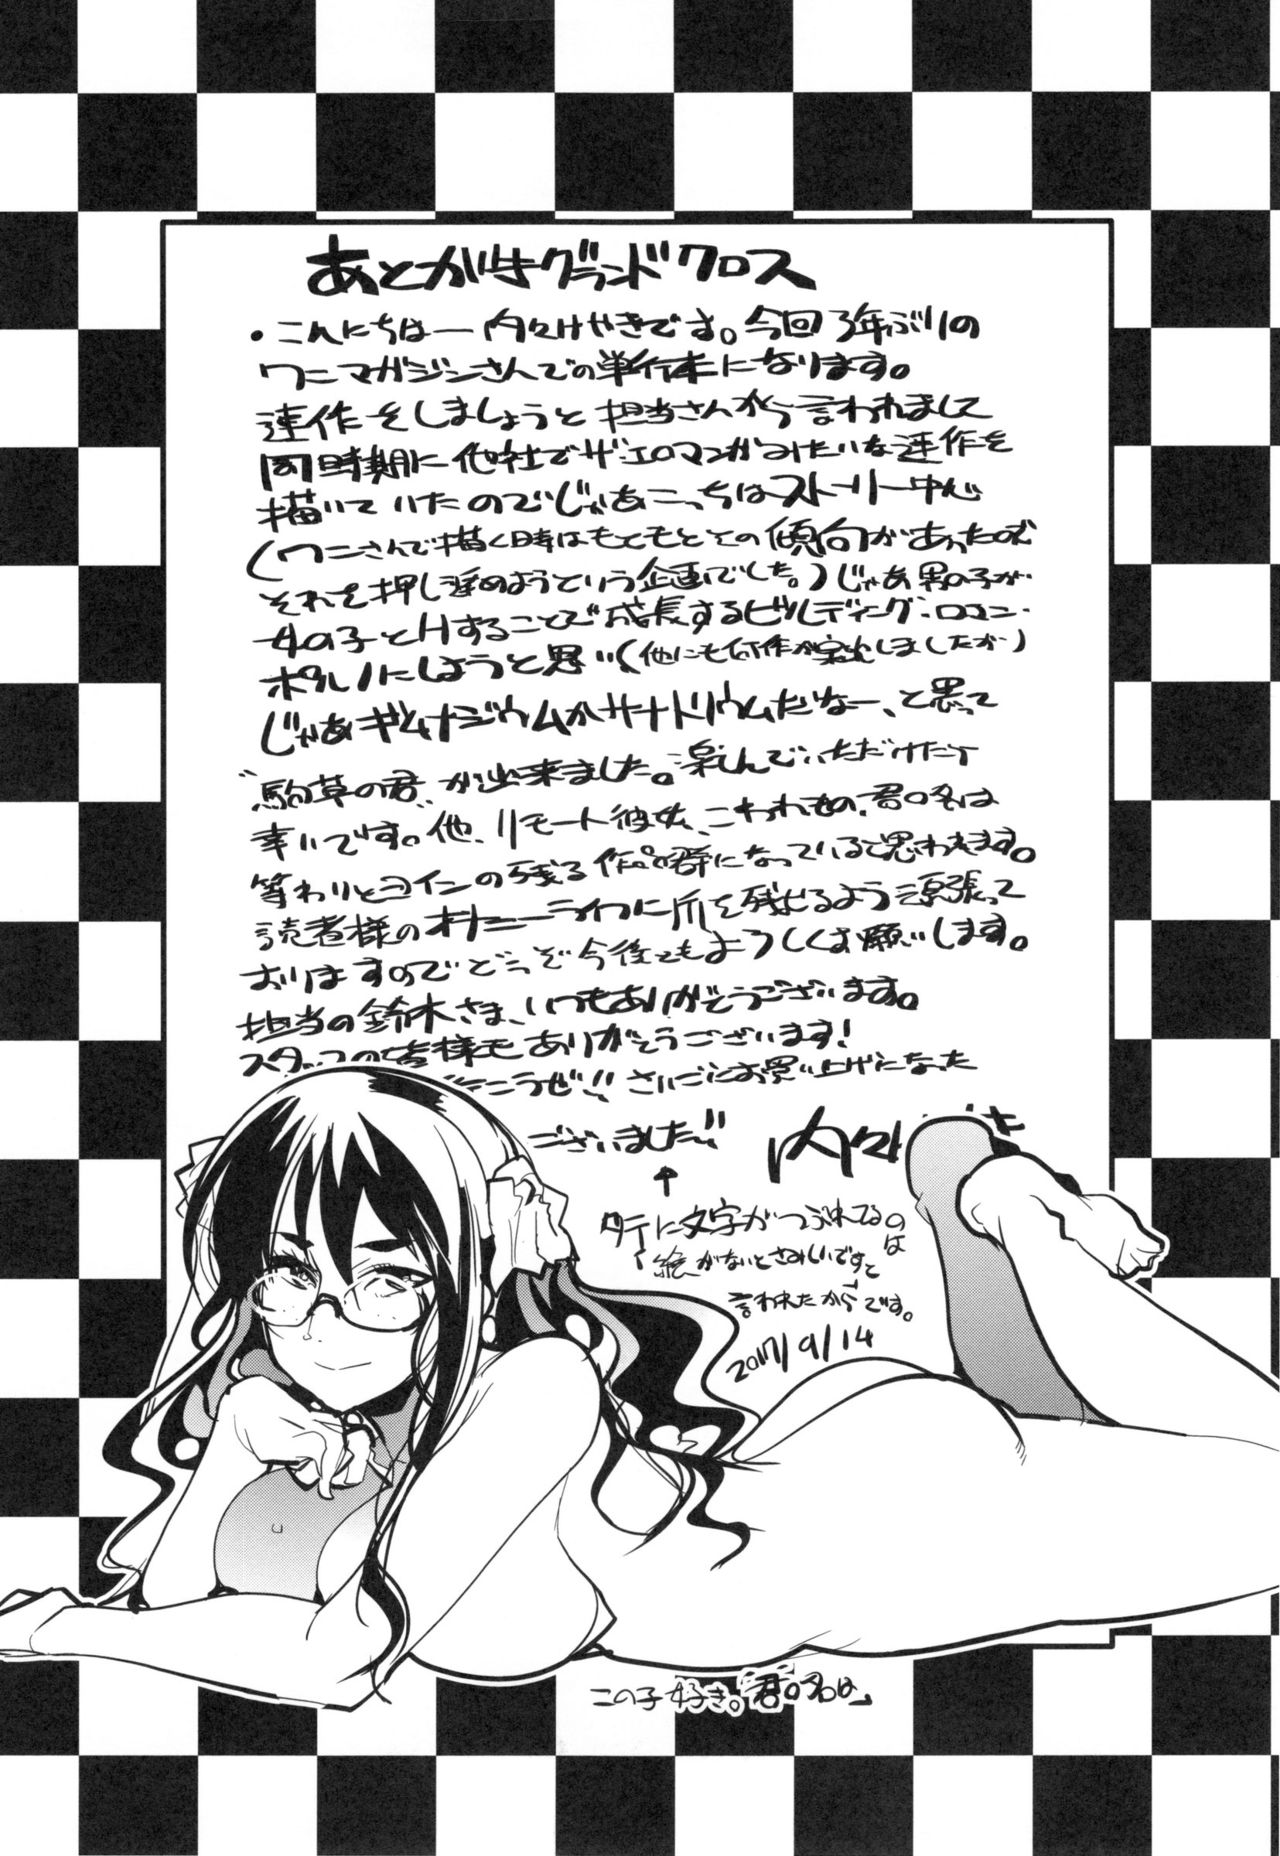 あとがきグランドクロス
・こんにちはー内々けやきです。今回3年ぶりの
ワニマガジンさんでの単行本になります。
連作をしましょうと担当さんから言われまして
同時期に他社でザ・エロマンガみたいな連作を
描いていたのでじゃあこっちはストーリー中心
(ワニさんで描く時はもともとその傾向があったので
それを押し進めようという企画でした。)じゃあ男の子が
女の子とHすることで成長するビルディング・ロマン・
ポルノにしようと思い(他にも何作か案出しましたが)
じゃあギムナジウムかサナトリウムだなー、と思って
"駒草の君"が出来ました。楽しんでいただけたら
幸いです。他、リモート彼女、こわれもの、君の名は
等わりとヨインの残る作品群になっていると思われます。
読者様のオナニーライフに爪を残せるよう頑張って
おりますのでどうぞ今後ともよろしくお願いします。
担当の鈴木さま、いつもありがとうございます。
スタッフの皆様もありがとうございます!
さいごにお買い上げになった
ございました!!
内々
↑
タテに文字がつぶれてるのは
絵がないとさみしいですと
言われたからです。
2017/9/14
この子好き。「君の名は」